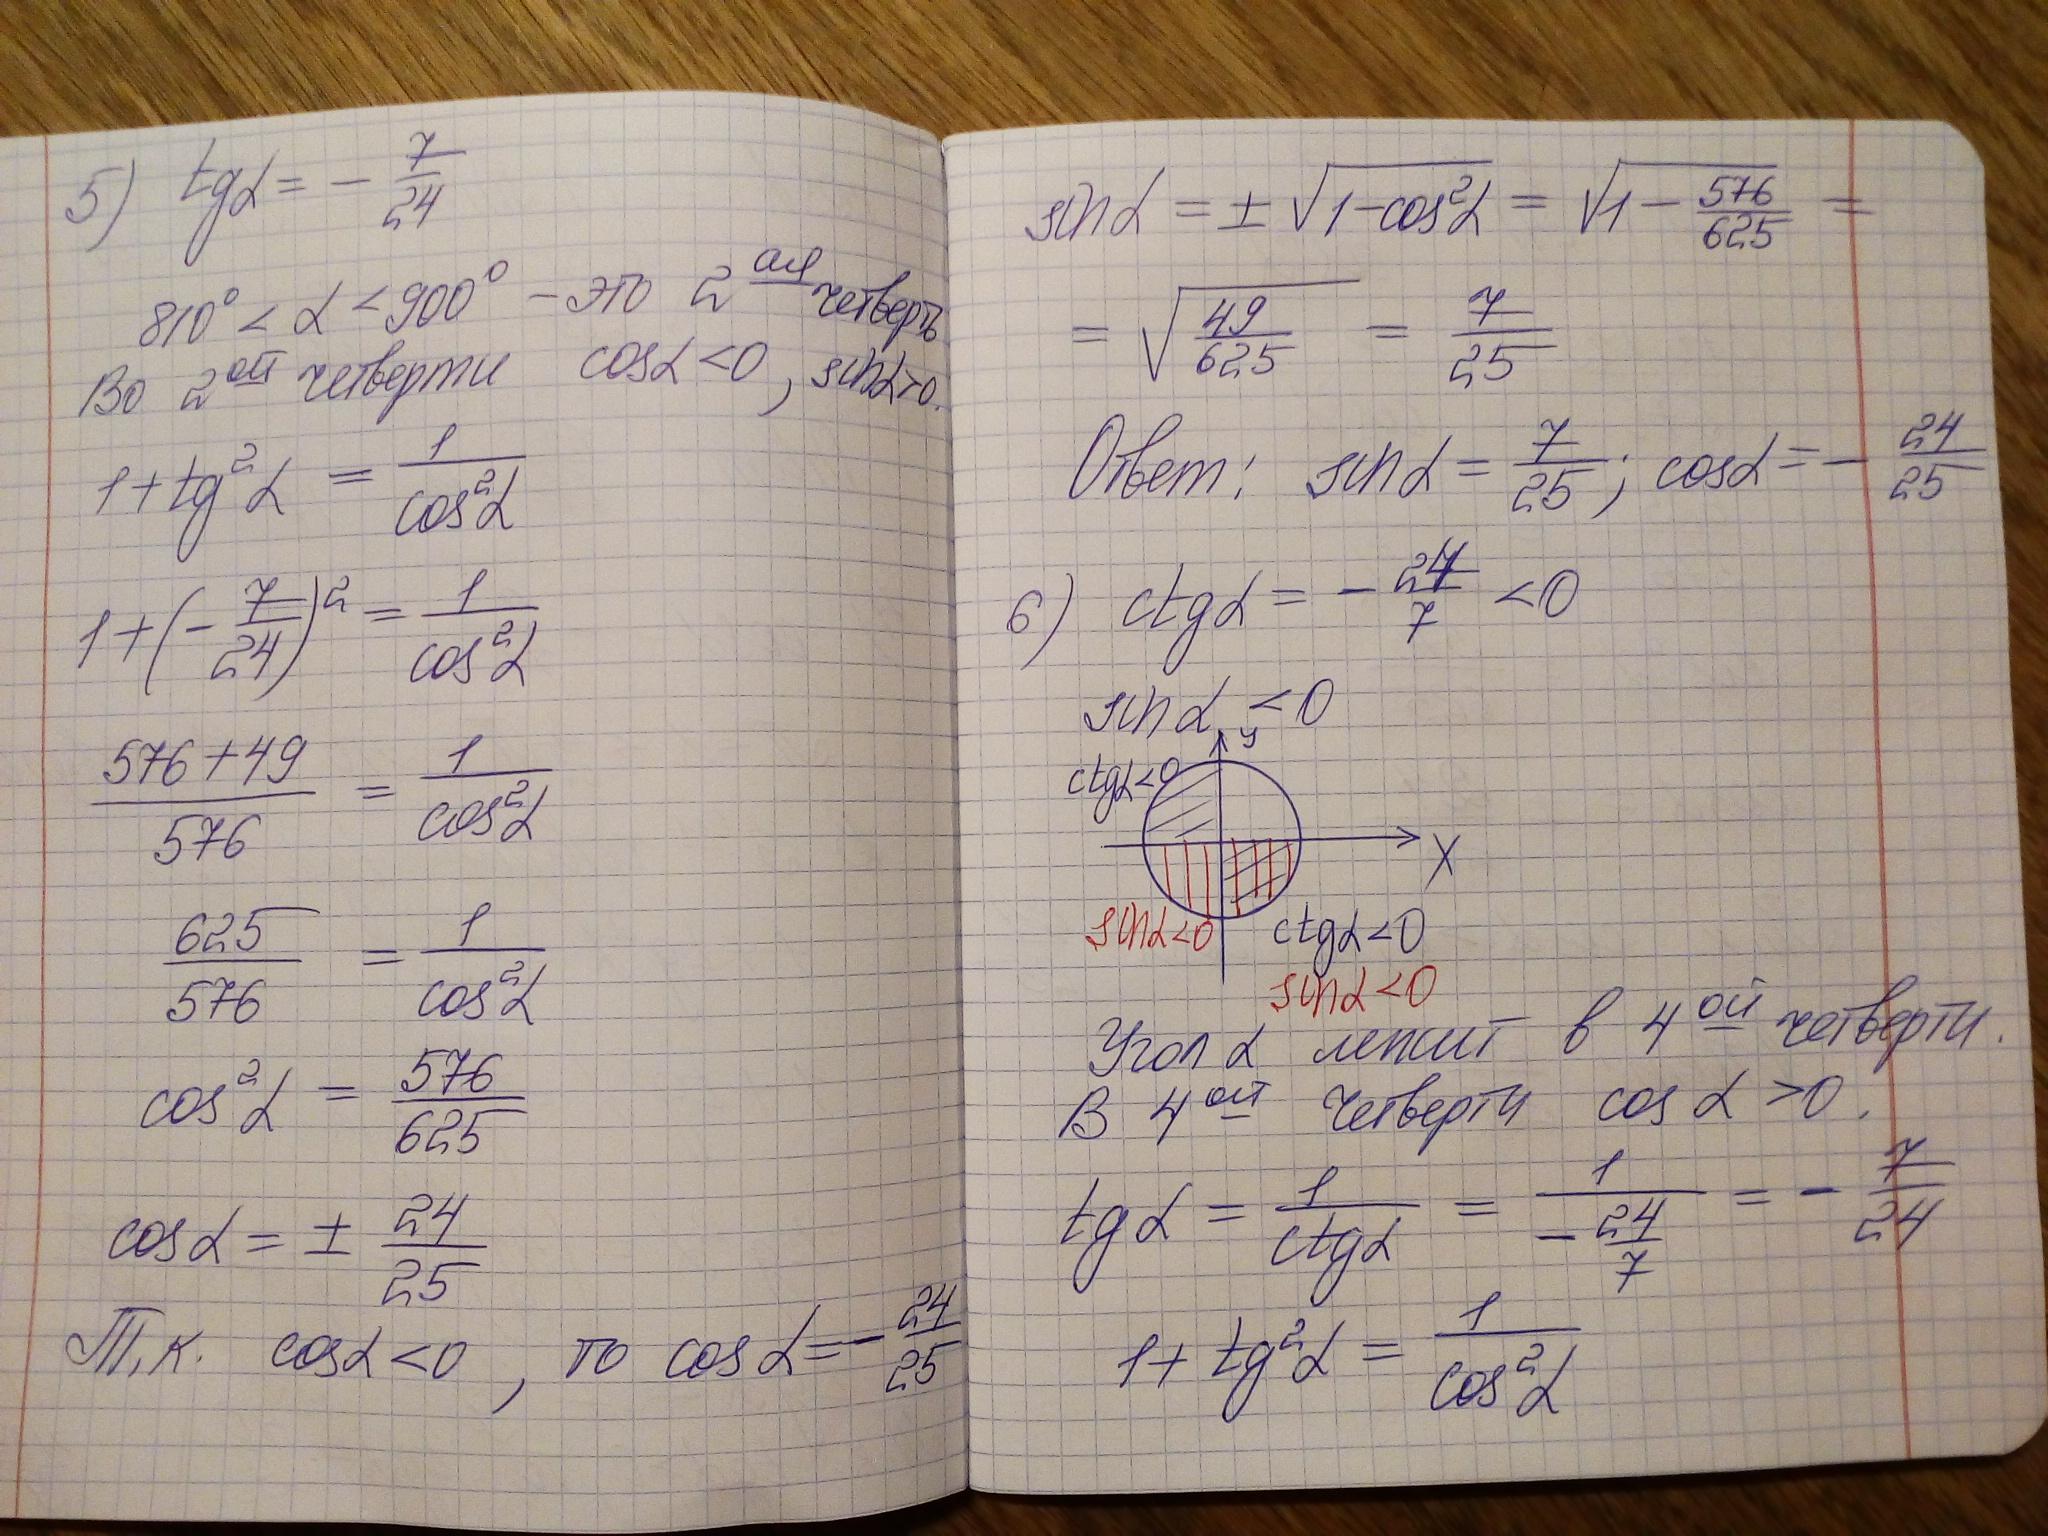 5) tgα = - 7/24
810° < α < 900° - это 2ая четверть
Во 2ой четверти cosα < 0, sinα > 0.
1 + tg²α = 1/cos²α
1 + (- 7/24)² = 1/cos²α
(576 + 49)/576 = 1/cos²α
625/576 = 1/cos²α
cos²α = 576/625
cosα = ± 24/25
Т.к. cosα < 0, то cosα = - 24/25
sinα = ± √(1 - cos²α) = √(1 - 576/625) =
= √(49/625) = 7/25
Ответ: sinα = 7/25; cosα = - 24/25
6) ctgα = - 24/7 < 0
sinα < 0
y
ctgα < 0
X
sinα < 0
ctgα < 0
sinα < 0
Угол α лежит в 4ой четверти.
В 4ой четверти cosα > 0.
tgα = 1/ctgα = 1/(- 24/7) = - 7/24
1 + tg²α = 1/cos²α